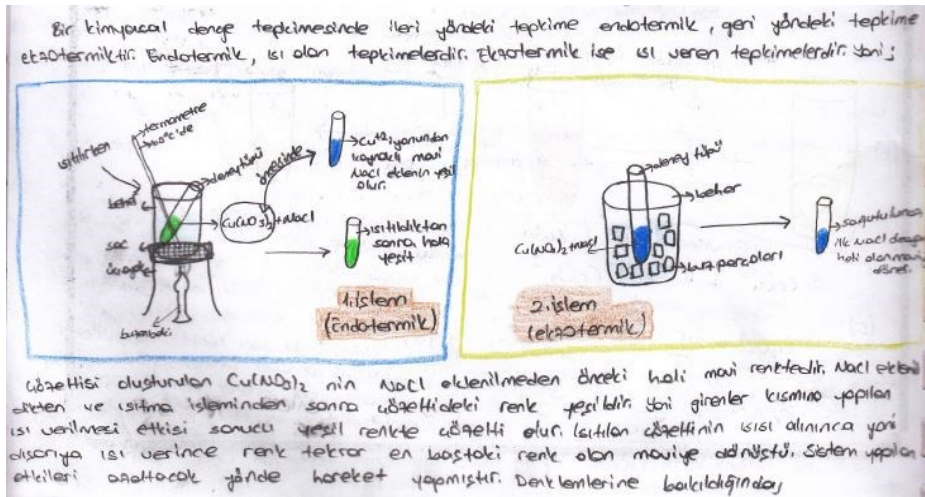 Bir kimyasal denge tepkimesinde ileri yöndeki tepkime endotermik, geri yöndeki tepkime
ekzotermiktir. Endotermik, ısı alan tepkimelerdir. Ekzotermik ise ısı veren tepkimelerdir. Yani;
termometre
100°C'de
ısıtılırken
deney tüpü
öncesinde
beher
Cu(NO3)2+NaCl
sac
üçayak
Cu+2 iyonundan
kaynaklı mavi
NaCl eklenin yeşil
olur.
ısıtıldıktan
sonra hala
yeşil
1.işlem
(Endotermik)
deney tüpü
beher
Cu(NO3)2+NaCl
buz parçaları
soğutulunca
ilk NaCl
hali olan maviye
döner.
2.işlem
(ekzotermik)
çözeltisi oluşturulan Cu(NO3)2 nin NaCl eklenilmeden önceki hali mavi renktedir. NaCl eklen
dikten ve ısıtma işleminden sonra çözeltideki renk yeşildir. Yani girenler kısmına yapılan
ısı verilmesi etkisi sonucu yeşil renkte çözelti olur. Isıtılan çözeltinin ısısı alınınca yani
dışarıya ısı verince renk tekrar en baştaki renk olan maviye dönüştü. Sistem yapılan
etkileri azaltacak yönde hareket yapmıştır. Denklemlerine bakıldığında;